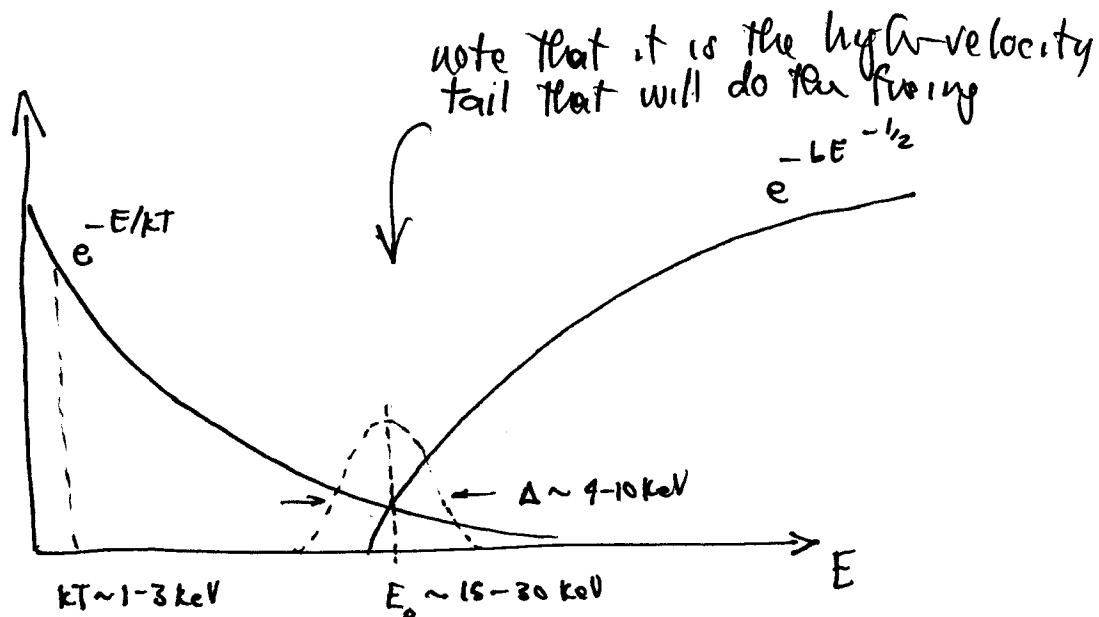 note that it is the high-velocity
tail that will do the fusing
e^{-bE^{-1/2}}
e^{-E/kT}
Δ ~ 4-10 keV
E
kT ~ 1-3 keV
E₀ ~ 15-30 keV